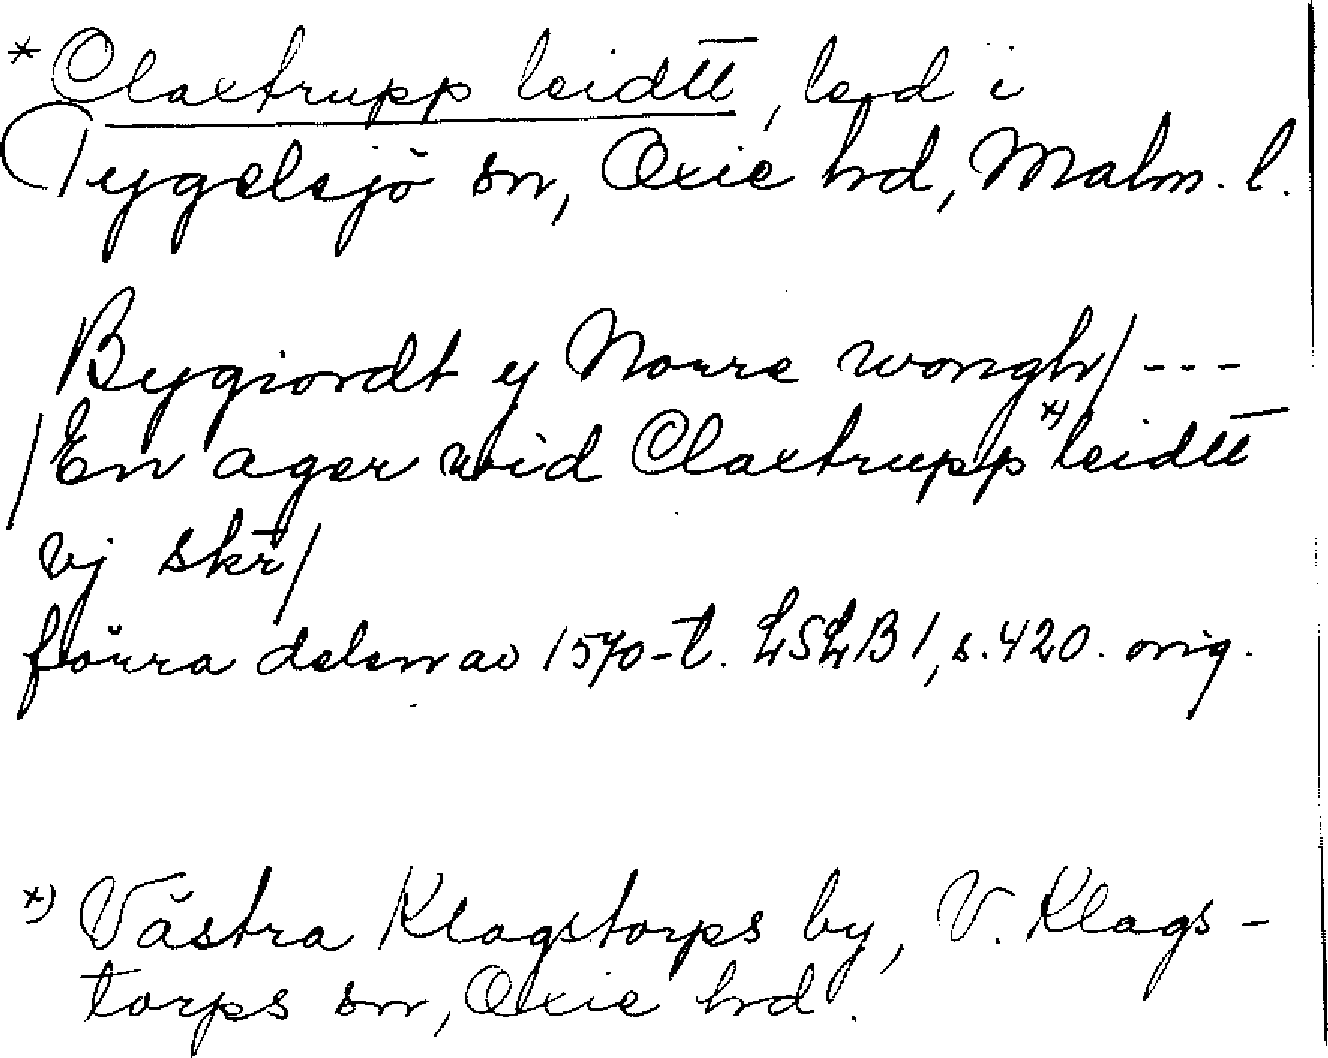 *Claxtrupp leidtt̅, led i
Tygelsjö sn, Oxie hrd, Malm. l.
Bygiordt y Norre wongh/ ---
/En ager wid Claxtrupp x) leidtt̅
vj skr̅/
förra delen av 1570-t. LSLB 1, s. 420. orig.
x) Västra Klagstorps by, V. Klags-
torps sn, Oxie hrd.